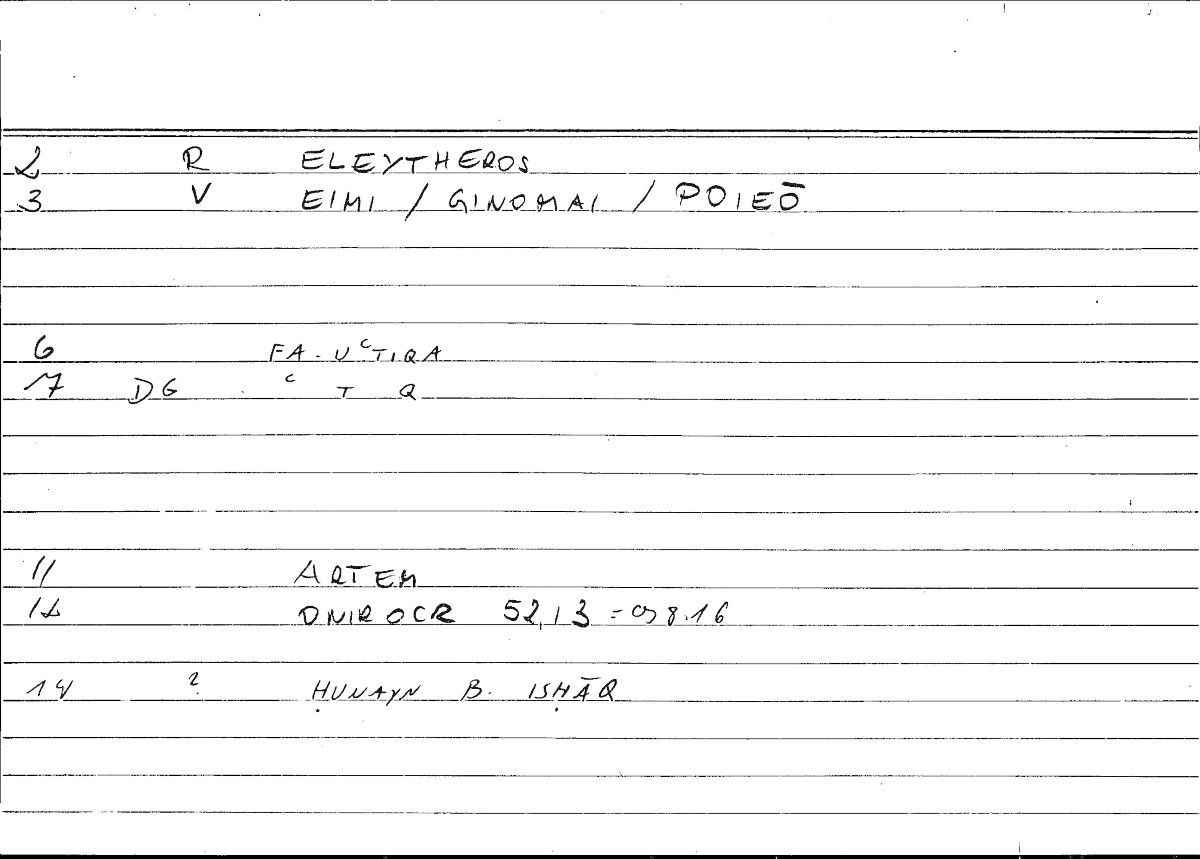 2 R ELEYTHEROS
3 V EIMI / GINOMAI / POIEŌ
6 FA-UʿTIQA
7 DG ʿ T Q
11 ARTEM
12 ONIROCR 52,13 = 98.16
14 ? ḤUNAYN B. ISḤĀQ